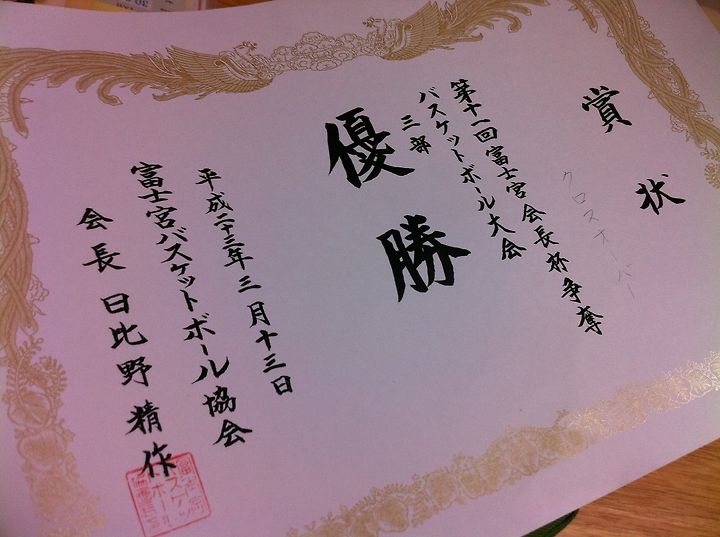 賞状
クロスオーバー
第十一回富士宮会長杯争奪
バスケットボール大会
三部
優勝
平成二十三年三月十三日
富士宮バスケットボール協会
会長 日比野精作